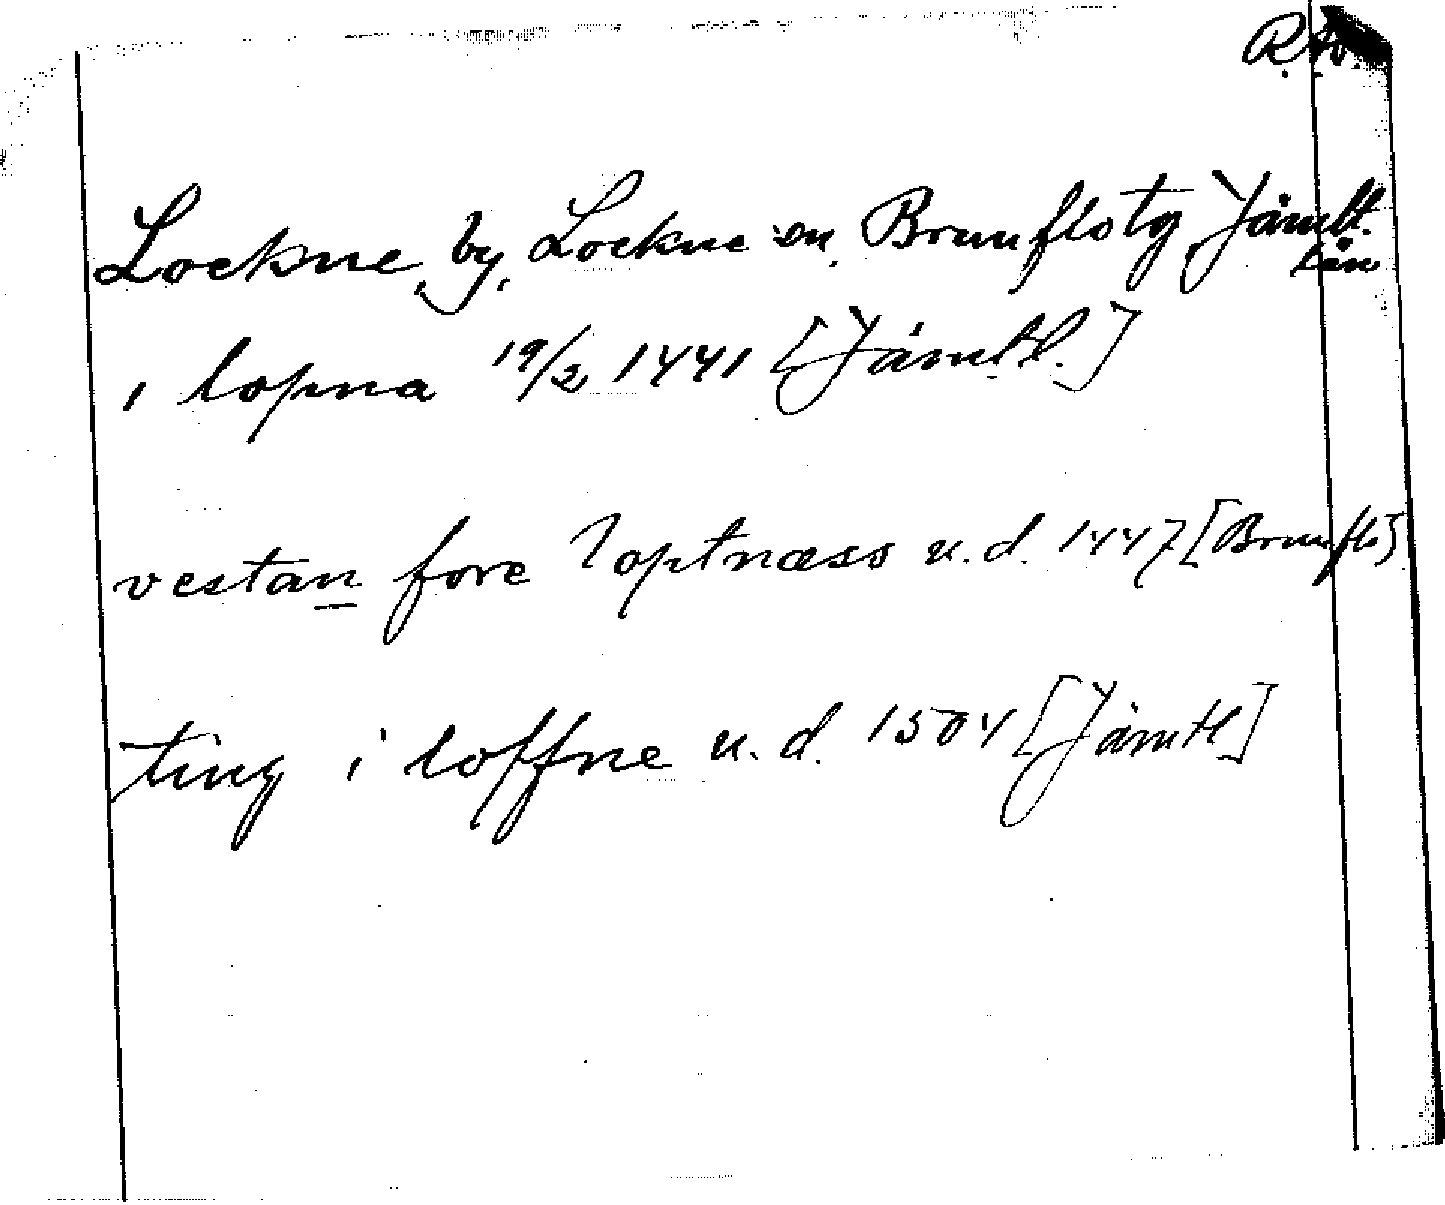 R.A.
Lockne, by, Lockne sn, Brunflo tg Jämtl.
län
i lopna 19/2 1441 [Jämtl.]
vestan fore loptnæss u.d. 1447 [Brunflo]
ting i loffne u.d. 1504 [Jämtl]